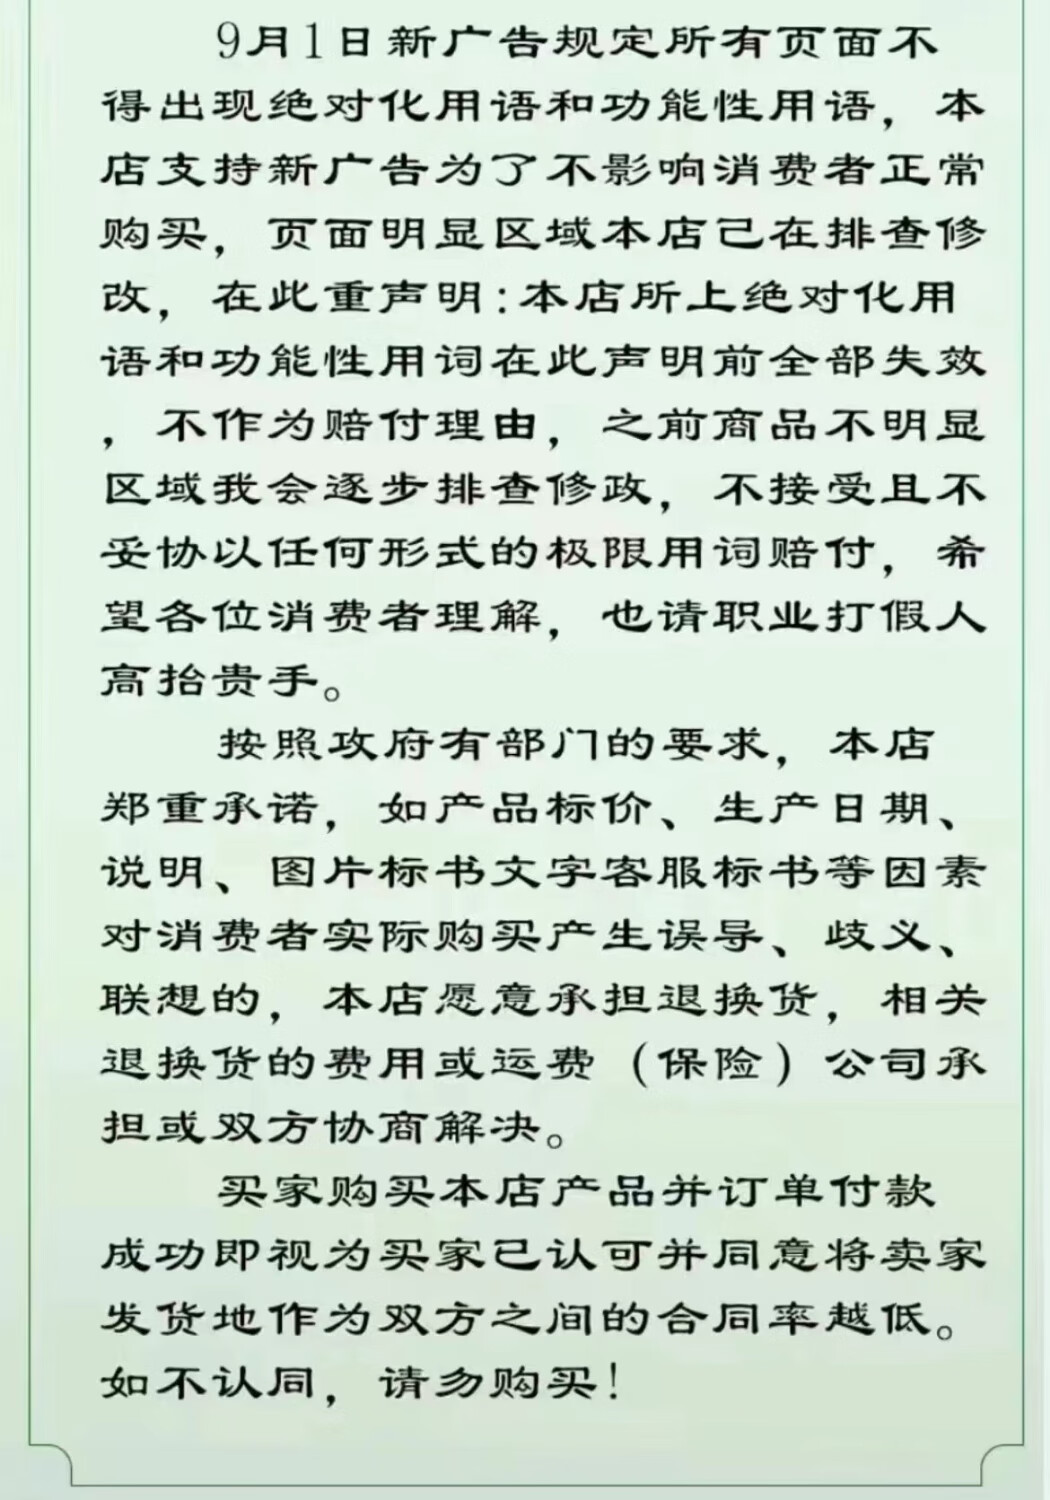 9月1日新广告规定所有页面不
得出现绝对化用语和功能性用语，本
店支持新广告为了不影响消费者正常
购买，页面明显区域本店己在排查修
改，在此重声明:本店所上绝对化用
语和功能性用词在此声明前全部失效
，不作为赔付理由，之前商品不明显
区域我会逐步排查修政，不接受且不
妥协以任何形式的极限用词赔付，希
望各位消费者理解，也请职业打假人
高抬贵手。
按照政府有部门的要求，本店
郑重承诺，如产品标价、生产日期、
说明、图片标书文字客服标书等因素
对消费者实际购买产生误导、歧义、
联想的，本店愿意承担退换货，相关
退换货的费用或运费（保险）公司承
担或双方协商解决。
买家购买本店产品并订单付款
成功即视为买家已认可并同意将卖家
发货地作为双方之间的合同率越低。
如不认同，请勿购买!